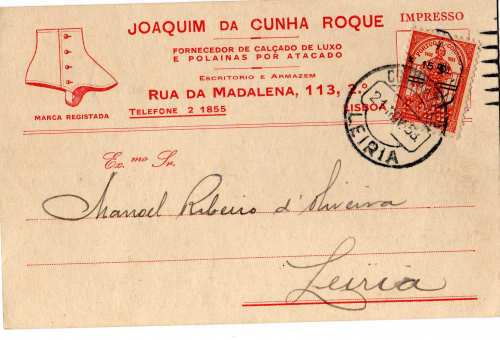 JOAQUIM DA CUNHA ROQUE
IMPRESSO
FORNECEDOR DE CALÇADO DE LUXO
E POLAINAS POR ATACADO
ESCRITORIO E ARMAZEM
RUA DA MADALENA, 113, 2.º
MARCA REGISTADA
TELEFONE 2 1855
LISBOA
LEIRIA
Ex.mo Sr.
Manoel Ribeiro d'Oliveira
Leiria